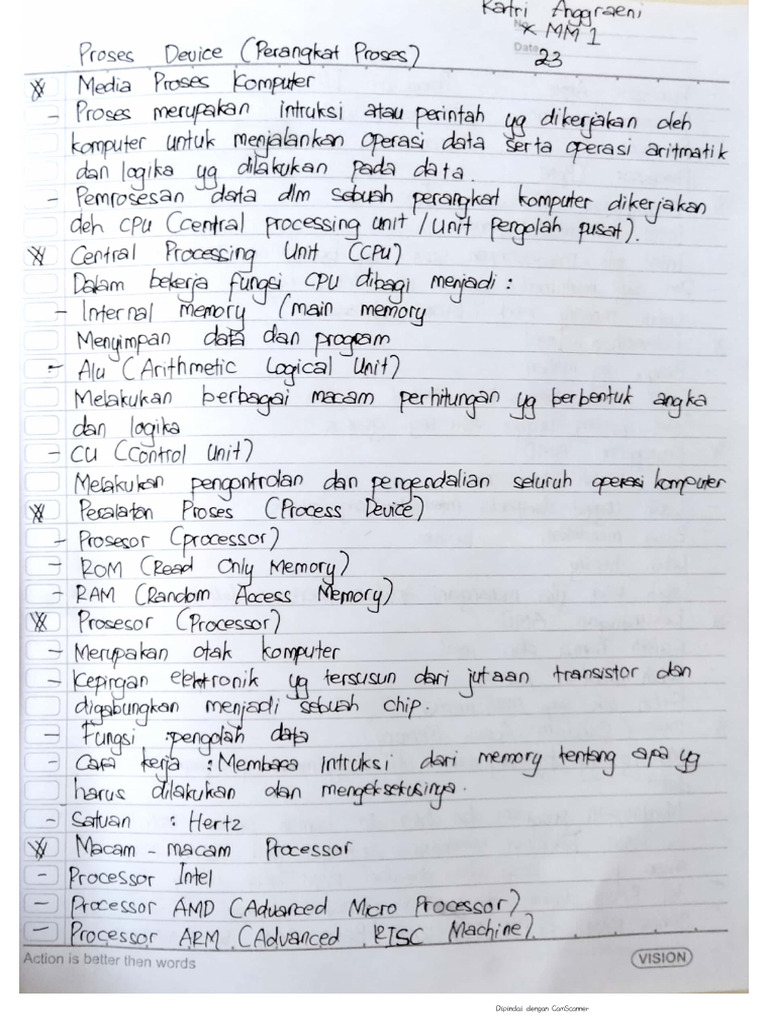 Katri Anggraeni
No. X MM 1
Date 23
Proses Device (Perangkat Proses)
Media Proses Komputer
- Proses merupakan intruksi atau perintah yg dikerjakan oleh
komputer untuk menjalankan operasi data serta operasi aritmatik
dan logika yg dilakukan pada data.
- Pemrosesan data dlm sebuah perangkat komputer dikerjakan
oleh CPU (central processing unit / Unit pengolah pusat).
Central Processing Unit (CPU)
Dalam bekerja fungsi CPU dibagi menjadi :
- Internal memory (main memory
Menyimpan data dan program
- Alu (Arithmetic Logical Unit)
Melakukan berbagai macam perhitungan yg berbentuk angka
dan logika
- CU (Control Unit)
Melakukan pengontrolan dan pengendalian seluruh operasi komputer
Peralatan Proses (Process Device)
- Prosesor (processor)
- ROM (Read Only Memory)
- RAM (Random Access Memory)
Prosesor (Processor)
- Merupakan otak komputer
- Kepingan elektronik yg tersusun dari jutaan transistor dan
digabungkan menjadi sebuah chip.
- Fungsi : pengolah data
- Cara kerja : Membaca intruksi dari memory tentang apa yg
harus dilakukan dan mengeksekusinya.
- Satuan : Hertz
Macam - macam Processor
- Processor Intel
- Processor AMD (Advanced Micro Processor)
- Processor ARM (Advanced RISC Machine)
Action is better then words
VISION
Dipindai dengan CamScanner